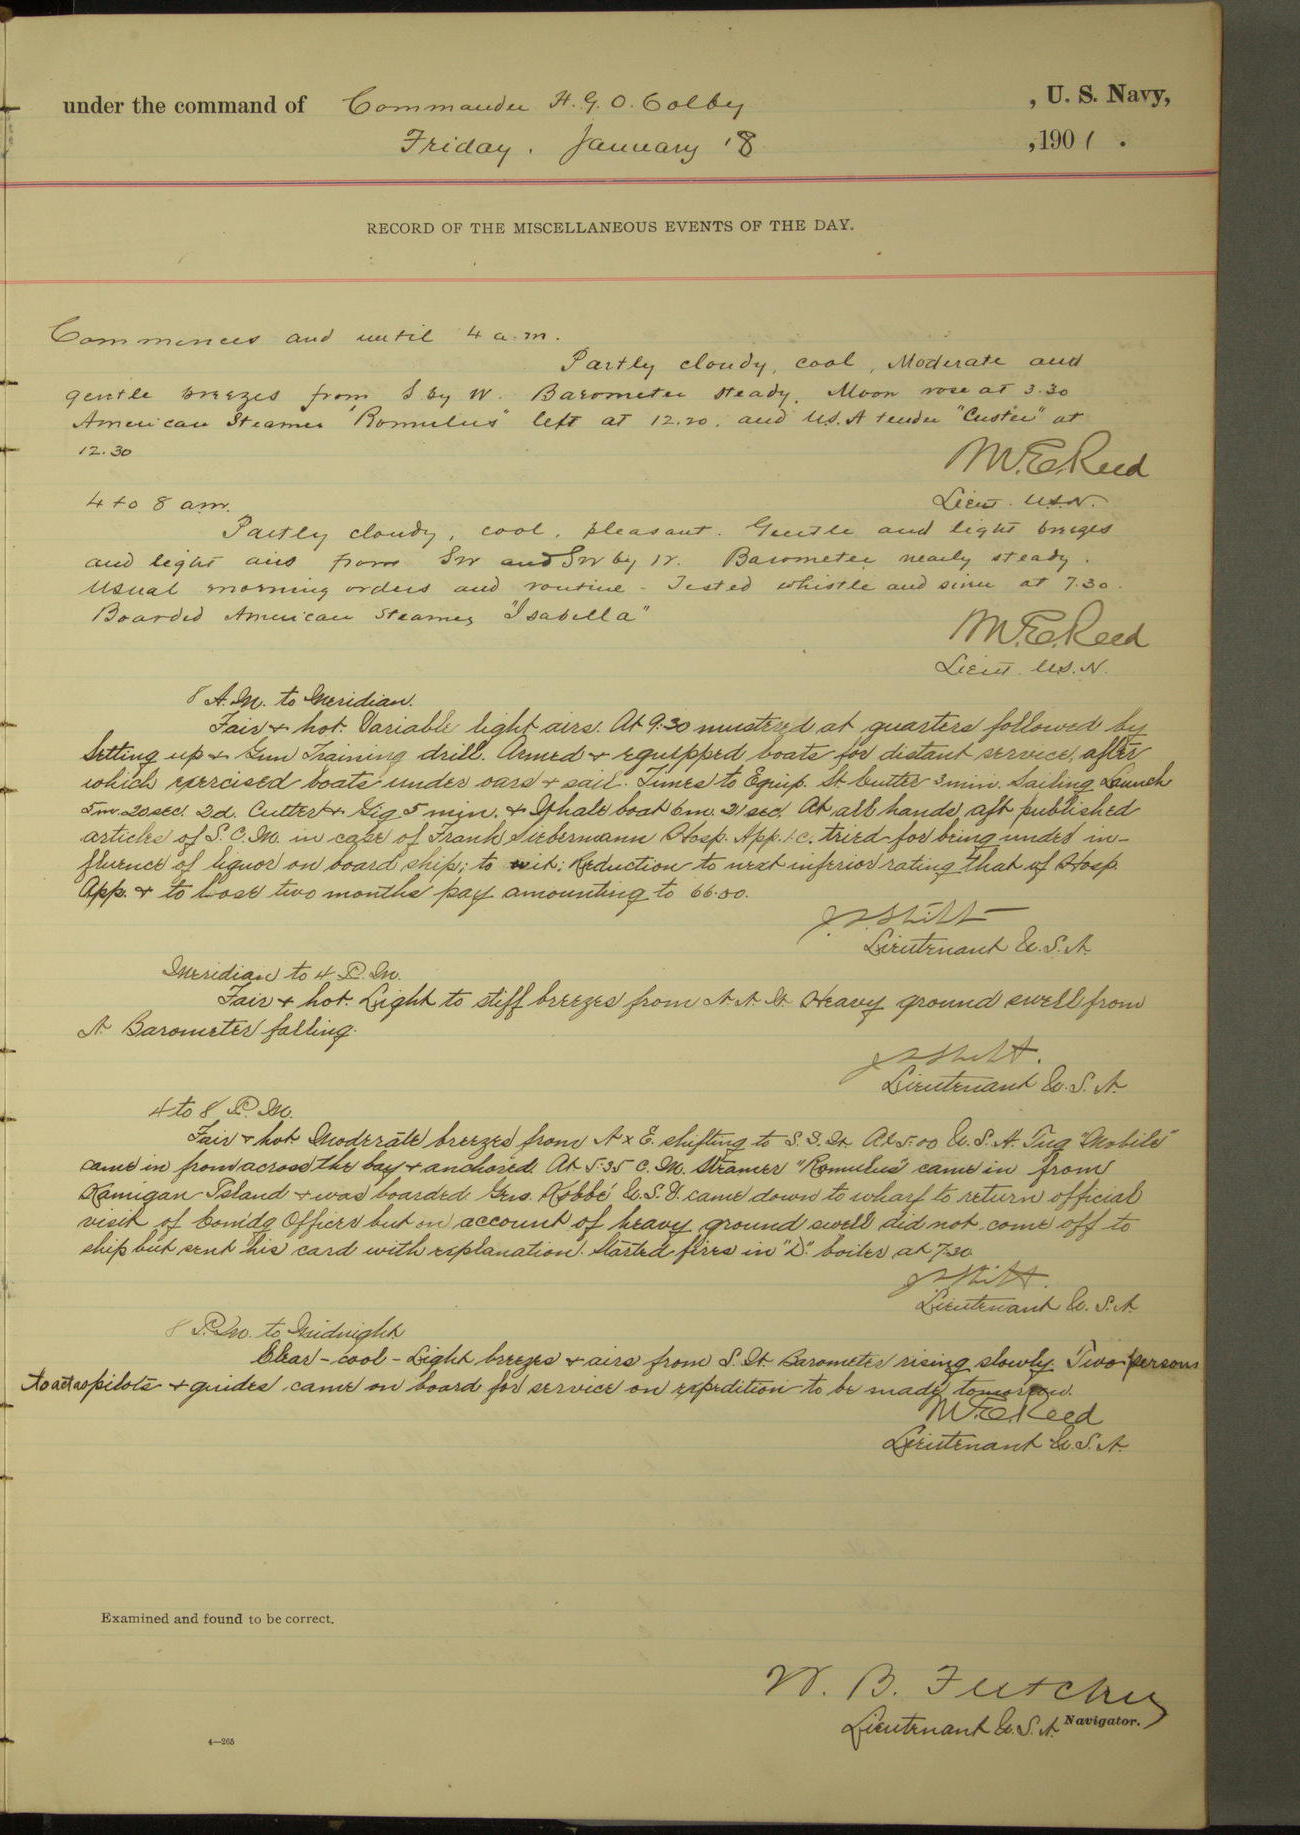 under the command of Commander H. G. O. Colby , U. S. Navy,
Friday. January 18 , 1901.
RECORD OF THE MISCELLANEOUS EVENTS OF THE DAY.
Commences and until 4 a.m.
Partly cloudy, cool, Moderate and
gentle breezes from S by W. Barometer steady. Moon rose at 3.30
American Steamer "Romulus" left at 12.20. and U.S.A tender "Custer" at
12.30
M.E. Reed
Lieut. U.S.N.
4 to 8 am.
Partly cloudy, cool, pleasant. Gentle and light breezes
and light airs from SW and SW by W. Barometer nearly steady.
Usual morning orders and routine - Tested whistle and siren at 7.30.
Boarded American Steamer "Isabella"
M.E. Reed
Lieut. U.S.N.
8 A.M. to Meridian.
Fair & hot. Variable light airs. At 9:30 mustered at quarters followed by
Setting up & Gun Training drill. Armed & equipped boats for distant service, after
which exercised boats under oars & sail. Times to Equip. St. Cutter 3 min. Sailing Launch
5 m. 20 sec. 2d. Cutter & Gig 5 min. & Whale boat 6 m. 21 sec. At all hands, aft published
articles of S.C.M. in case of Frank Siebermann Hosp. App. 1.c. tried for being under in-
fluence of liquor on board ship; to wit: Reduction to next inferior rating that of Hosp.
App. & to lose two months' pay amounting to 66.00.
Lieutenant U.S.N.
Meridian to 4 P.M.
Fair & hot. Light to stiff breezes from N.N.W. Heavy ground swell from
N. Barometer falling.
Lieutenant U.S.N.
4 to 8 P.M.
Fair & hot Moderate breezes from N x E. shifting to S.S.W. At 5.00 U.S.A. Tug "Mobile"
came in from across the bay & anchored. At 5:35 C.M. Steamer "Romulus" came in from
Kamigan Island & was boarded. Gen. Kobbé U.S.V. came down to wharf to return official
visit of Com'dg Officer but on account of heavy ground swell did not come off to
ship but sent his card with explanation. Started fires in "D" boiler at 7.30
Lieutenant U.S.N.
8 P.M. to Midnight
Clear - cool - Light breezes & airs from S.W. Barometer rising slowly. Two persons
to act as pilots & guides came on board for service on expedition to be made tomorrow.
M.E. Reed
Lieutenant U.S.N.
Examined and found to be correct.
W. B. Fletcher
Lieutenant U.S.N. Navigator.
4-265